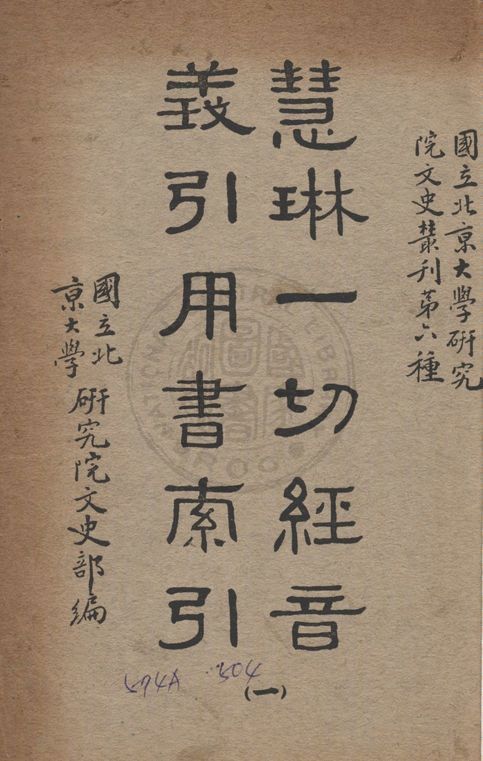 國立北京大學研究
院文史叢刊第六種
慧琳一切經音
義引用書索引
(一)
國立北
京大學
研究院文史部編
594A 504